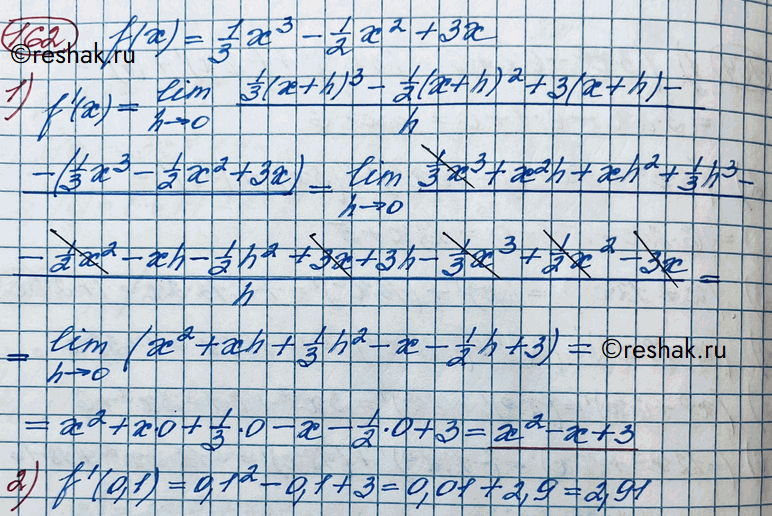 162 f(x) = 1/3 x³ - 1/2 x² + 3x
©reshak.ru
1) f'(x) = lim h→0 (1/3 (x+h)³ - 1/2 (x+h)² + 3(x+h) - / h
-(1/3 x³ - 1/2 x² + 3x) = lim h→0 1/3 x³ + x²h + xh² + 1/3 h³ -
- 1/2 x² - xh - 1/2 h² + 3x + 3h - 1/3 x³ + 1/2 x² - 3x / h =
= lim h→0 (x² + xh + 1/3 h² - x - 1/2 h + 3) =
©reshak.ru
= x² + x·0 + 1/3 · 0 - x - 1/2 · 0 + 3 = x² - x + 3
2) f'(0,1) = 0,1² - 0,1 + 3 = 0,01 + 2,9 = 2,91